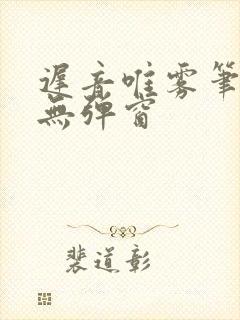 遲音唯雾筆
無彈窗
裴道彰